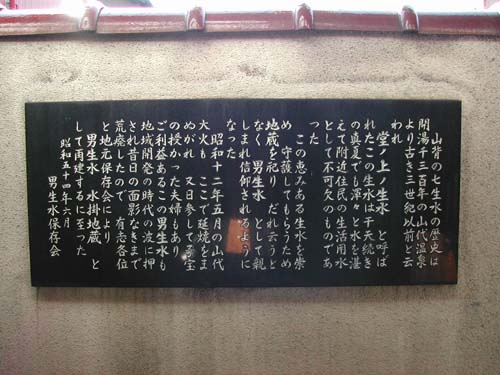 山背の上生水の歴史は
開湯千三百年の山代温泉
より古き三世紀以前と云
われ
堂ノ上ノ生水 と呼ば
れたこの生水は干天続き
の真夏でも渾々と水を湛
えて附近住民の 生活用水
として不可欠のものであ
った
この恵みある生水を崇
め 守護してもらうため
地蔵を祀り だれ云うと
なく 男生水 として親
しまれ信仰されるように
なった
昭和十二年五月の山代
大火も ここで延焼をま
ぬがれ 又日参して子宝
の授かった夫婦もあり
ご利益あるこの男生水も
地域開発の時代の波に押
され昔日の面影なきまで
荒廃したので 有志各位
と地元保存会により
男生水 水掛地蔵 と
して再建するに至った
昭和五十四年六月
男生水保存会